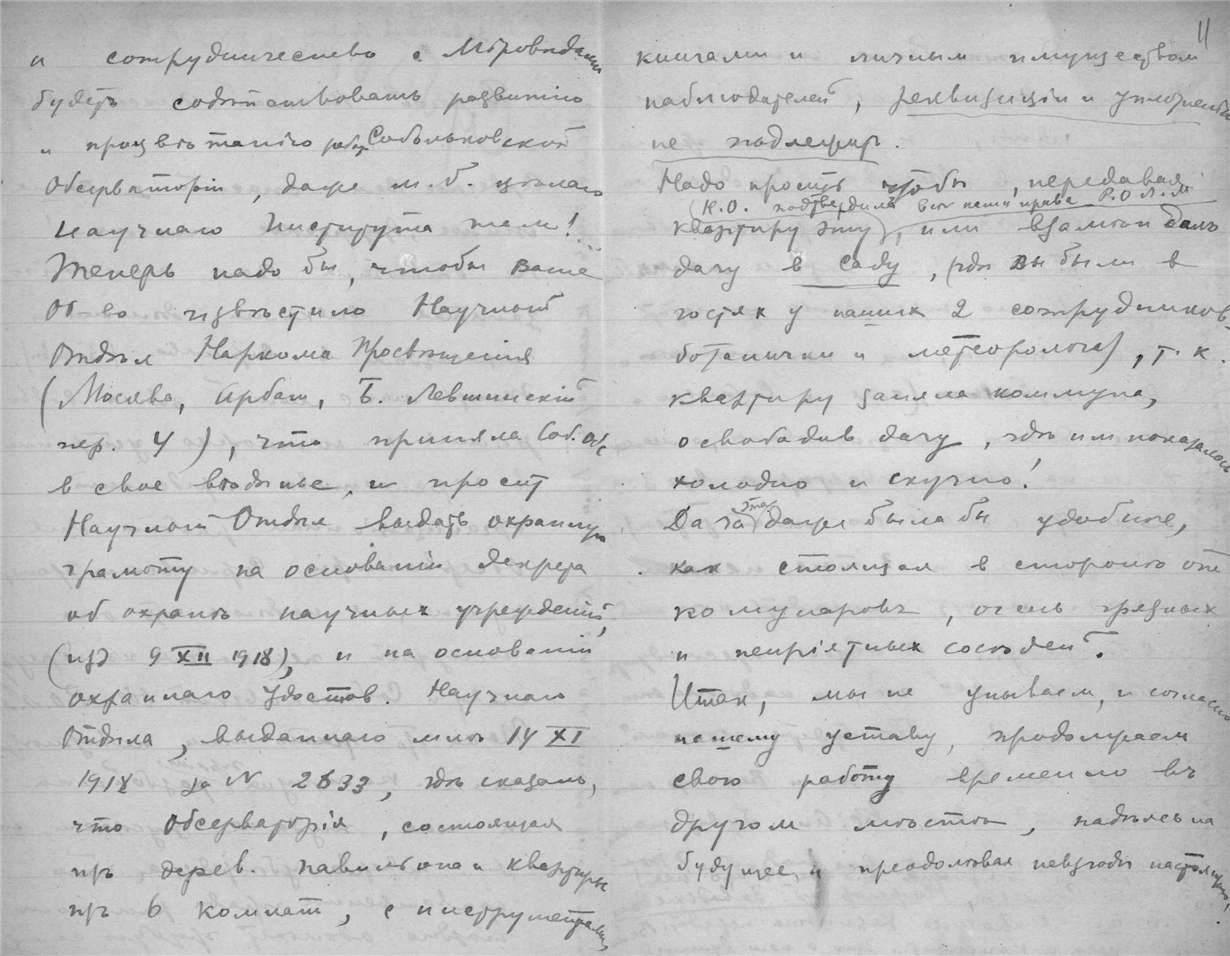 и сотрудничество с Міровѣдами
будетъ содѣйствовать развитію
и процвѣтанію рабо Собольковской
Обсерваторіи, даже м. б. цѣлаго
Научнаго Института там!...
Теперь надо бы, чтобы Ваше
Об-во извѣстило Научный
Отдѣл Наркома Просвѣщенія
(Москва, Арбат, Б. Левшинскій
пер. 4), что приняло Соб. Обс
в свое вѣдѣнье, и просит
Научный Отдѣл выдать охранную
грамоту на основаніи декрета
об охранѣ научных учрежденій,
(изд 9 XII 1918), и на основаніи
охраннаго удостов. Научнаго
Отдѣла, выданнаго мнѣ 14 XI
1918 за N 2633, гдѣ сказано,
что Обсерваторія, состоящая
изъ дерев. павильона и квартиры
изъ 6 комнат, с инструментами,
11
книгами и личным имуществом
наблюдателей, реквизиціи и уплотненію
не подлежит.
Надо просить чтобы, передавая
(Н.О. подтвердила все права Р.О.Л.М
квартиру эту), или взамѣн дала
дачу в саду, (гдѣ вы были в
гостях у наших 2 сотрудников
ботанички и метеоролога), т. к.
квартиру заняла коммуна,
освободив дачу, гдѣ им показалось
холодно и скучно!
Да эта дача была бы удобнѣе,
как стоящая в сторонѣ от
комунаровъ, очень грязных
и непріятных сосѣдей.
Итак, мы не унываем, и согласно
нашему уставу, продолжаем
свою работу временно въ
другом мѣстѣ, надѣясь на
будущее, и преодолѣвая невзгоды настоящаго!